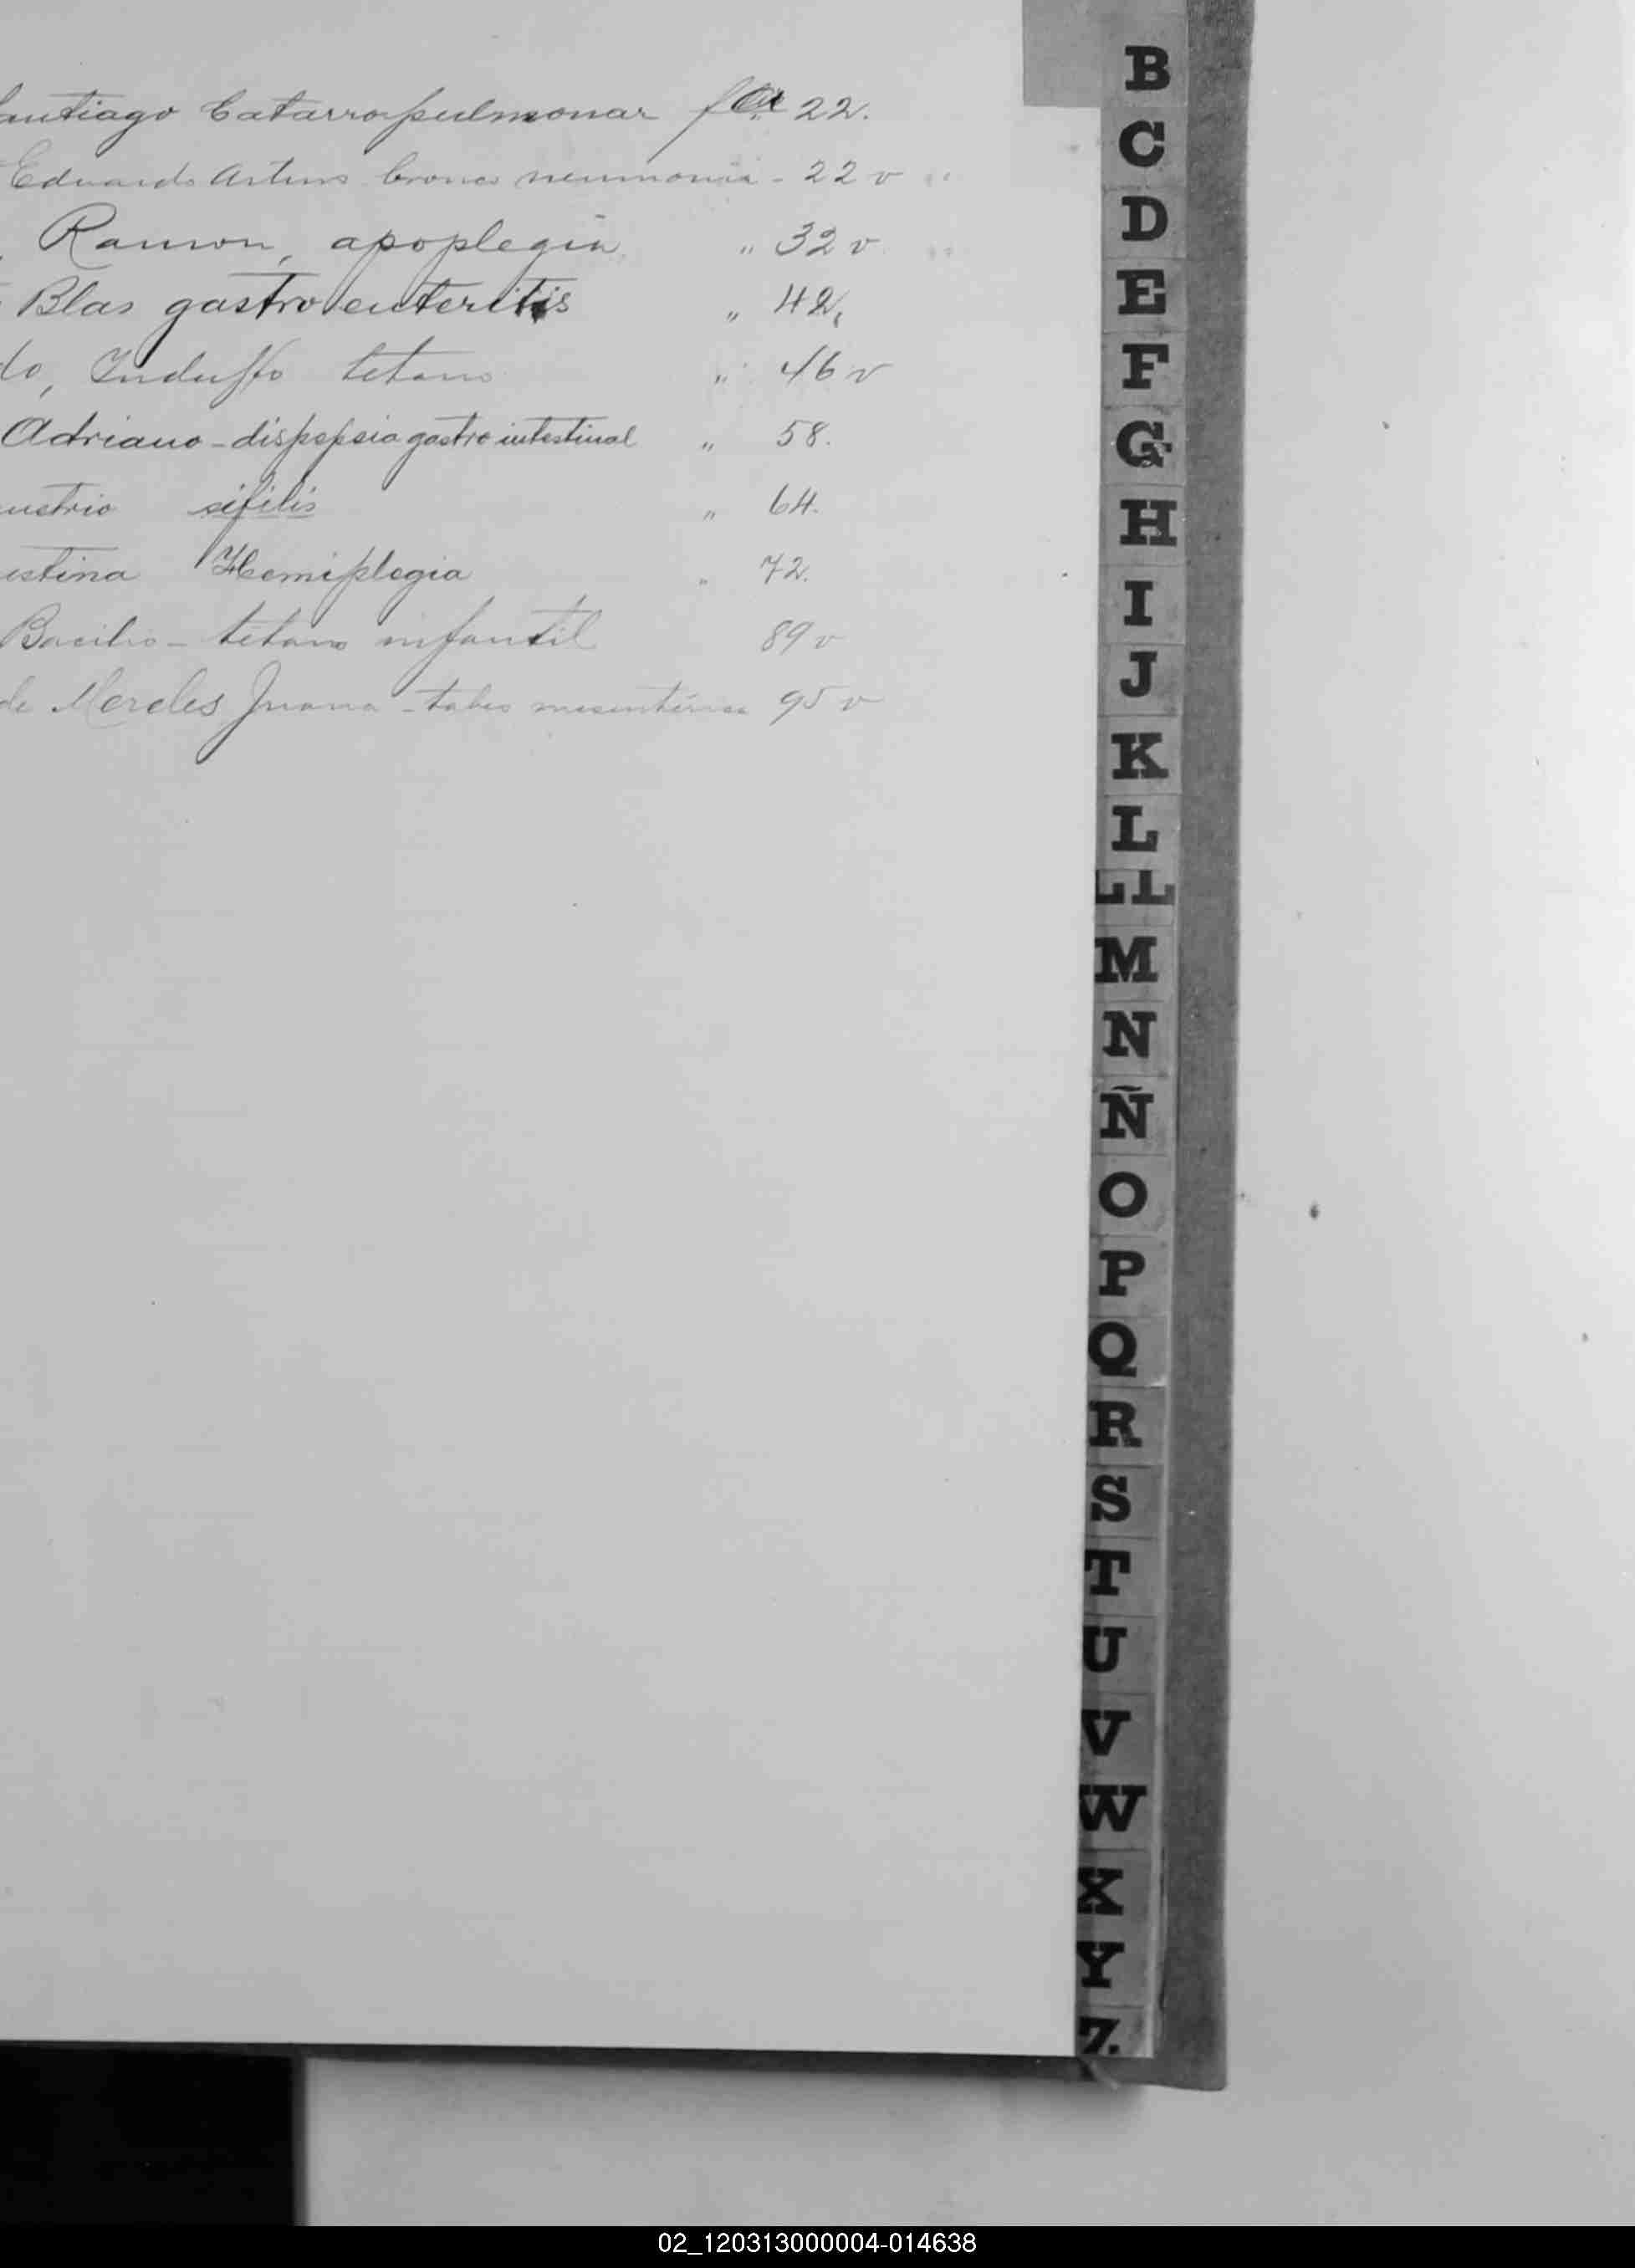 Santiago Catarro pulmonar fta 22.
Eduardo Arturo bronco neumonia - 22 v
Ramon, apoplegia " 32 v
Blas gastro enteritis " 42.
do, Indulfo tetano " 46 v
Adriano - dispepsia gastro intestinal " 58.
sifilis " 64.
Hemiplegia " 72.
Bacilio - tétano infantil 89 v
de Mereles Juana - tabes mesenterica 95 v
B
C
D
E
F
G
H
I
J
K
L
LL
M
N
Ñ
O
P
Q
R
S
T
U
V
W
X
Y
Z.
02_120313000004-014638